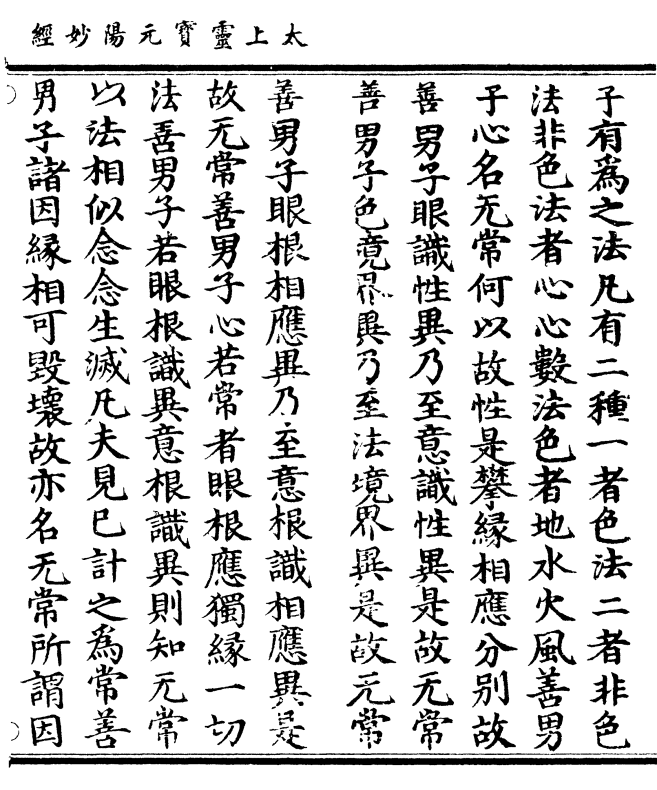 太上靈寳元陽妙經
子有爲之法凡有二種一者色法二者非色
法非色法者心心數法色者地水火風善男
子心名无常何以故性是攀緣相應分别故
善男子眼識性異乃至意識性異是故无常
善男子色竟界異乃至法境界異是故无常
善男子眼根相應異乃至意根識相應異是
故无常善男子心若常者眼根應獨緣一切
法善男子若眼根識異意根識異則知无常
以法相似念念生滅凡夫見已計之爲常善
男子諸因緣相可毀壞故亦名无常所謂因